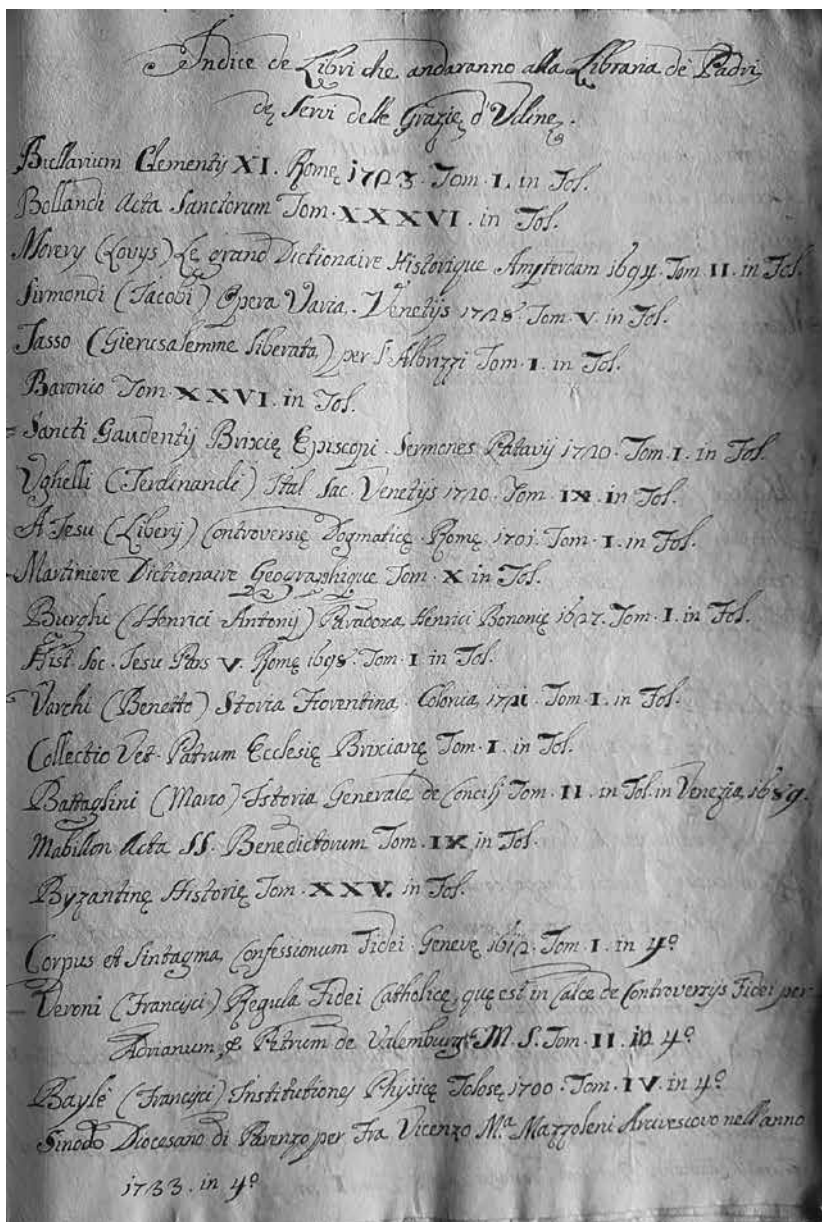 Indice de Libri che andaranno alla Libraria de Padri
de Servi delle Grazie d'Udine.
Bullarium Clementij XI. Romę 1723. Tom. I. in Fol.
Bollandi Acta Sanctorum Tom. XXXVI. in Fol.
Morery (Lovys) Le grand Dictionaire Historique Amsterdam 1694. Tom. II. in Fol.
Sirmondi (Iacobi) Opera Varia. Venetijs 1728. Tom. V. in Fol.
Tasso (Gierusalemme Liberata) per l'Albrizzi Tom. I. in Fol.
Baronio Tom. XXVI. in Fol.
Sancti Gaudentij Brixię Episcopi. Sermones Patavij 1720. Tom. I. in Fol.
Vghelli (Ferdinandi) Ital. Sac. Venetijs 1720. Tom. IX. in Fol.
A Iesu (Liberij) Controversię Dogmaticę. Romę. 1701. Tom. I. in Fol.
Martiniere Dictionaire Geographique Tom. X in Fol.
Burghi (Henrici Antonij) Paradoxa Henrici Bononię 1627. Tom. I. in Fol.
Hist. Soc. Iesu Pars V. Romę 1698. Tom. I. in Fol.
Varchi (Benetto) Storia Fiorentina. Colonia, 1721. Tom. I. in Fol.
Collectio Vet. Patrum Ecclesię Brixianę Tom. I. in Fol.
Battaglini (Marco) Istoria Generale de Concilj Tom. II. in Fol. in Venezia, 1689.
Mabillon Acta SS. Benedictorum Tom. IX in Fol.
Byzantinę Historię Tom. XXV. in Fol.
Corpus et Sintagma Confessionum Fidei. Genevę 1612. Tom. I. in 4º
Veroni (Francisci) Regula Fidei Catholicę, quę est in Calce de Controversijs Fidei per
Adrianum, & Petrum de Valemburg M. S. Tom. II. in 4º
Baylé (Francisci) Institutiones Physicę Tolosę, 1700. Tom. IV. in 4º
Sinodo Diocesano di Parenzo per Fra Vicenzo M.ª Mazzoleni Arcivescovo nell'anno
1733. in 4º